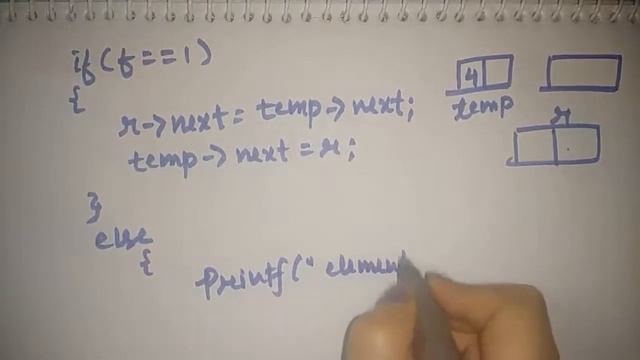 if(f==1)
{
r->next= temp->next;
temp-> next = r;
}
else
{
printf(" elemen
4
temp
r